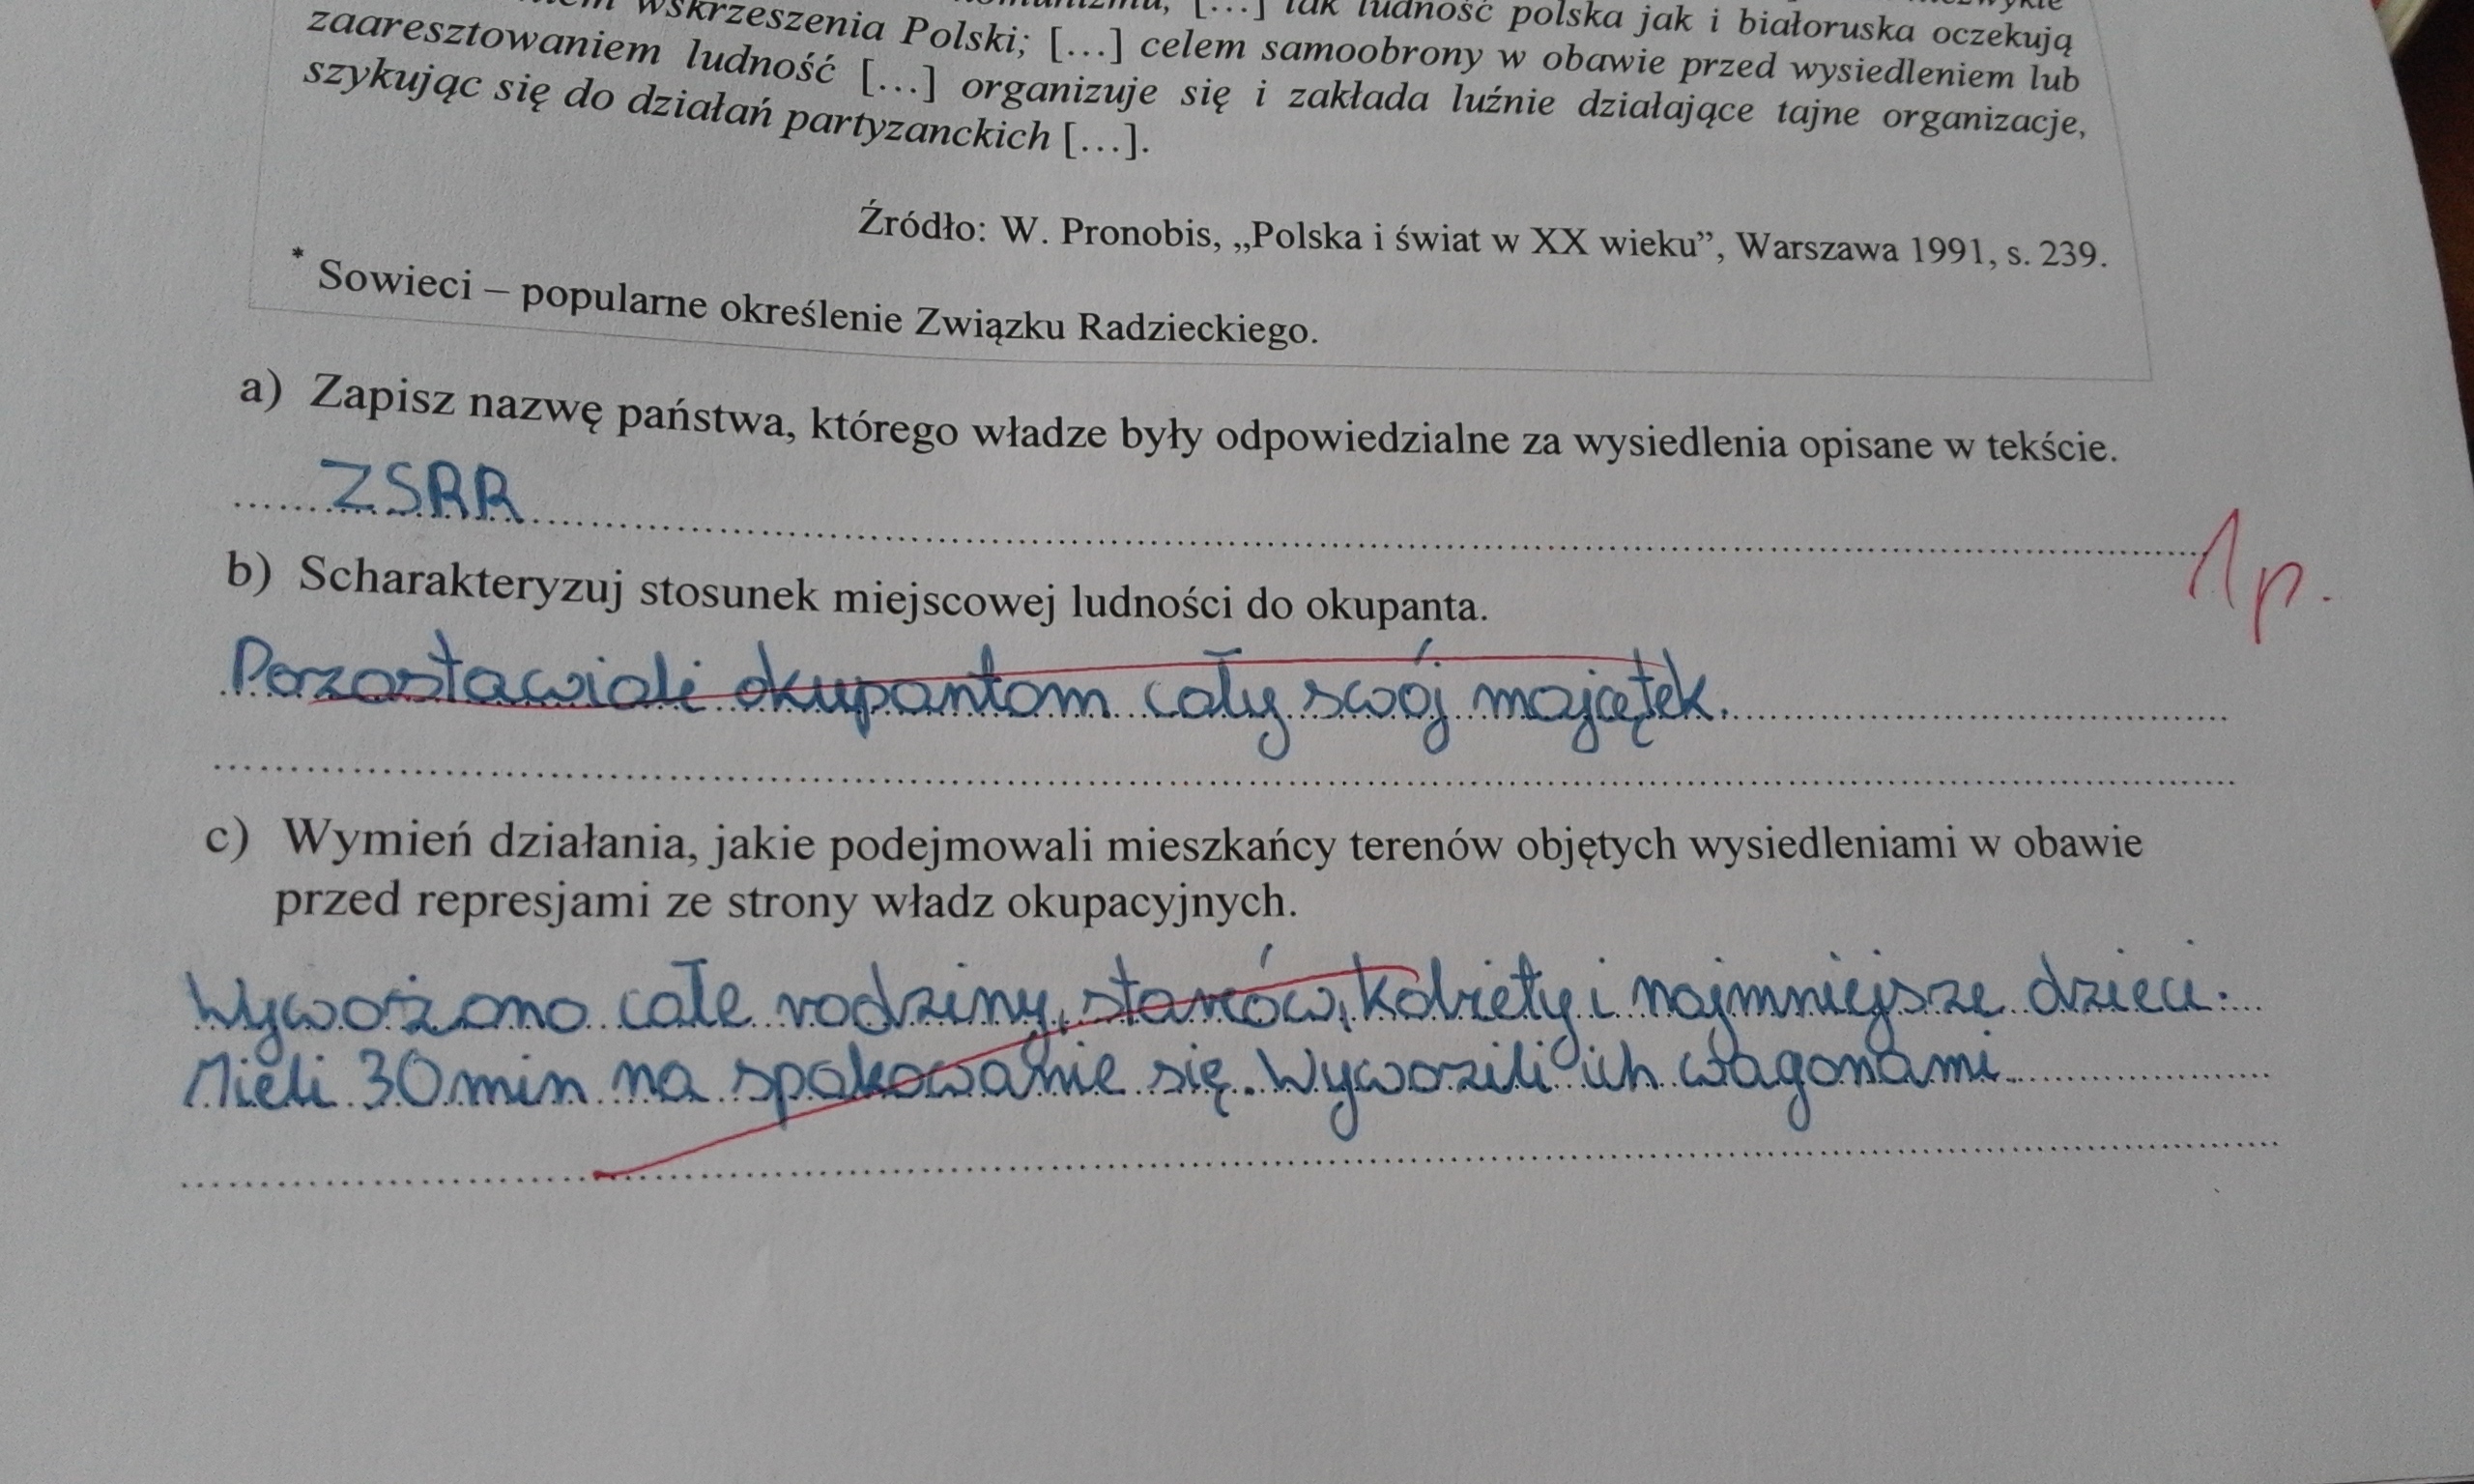 wskrzeszenia Polski; [...] tak ludność polska jak i białoruska oczekują
zaaresztowaniem ludność [...] celem samoobrony w obawie przed wysiedleniem lub
szykując się do działań partyzanckich [...]. organizuje się i zakłada luźnie działające tajne organizacje,
Źródło: W. Pronobis, „Polska i świat w XX wieku”, Warszawa 1991, s. 239.
* Sowieci – popularne określenie Związku Radzieckiego.
a) Zapisz nazwę państwa, którego władze były odpowiedzialne za wysiedlenia opisane w tekście.
ZSRR
1p.
b) Scharakteryzuj stosunek miejscowej ludności do okupanta.
Pozostawiali okupantom cały swój majątek.
c) Wymień działania, jakie podejmowali mieszkańcy terenów objętych wysiedleniami w obawie
przed represjami ze strony władz okupacyjnych.
Wywożono całe rodziny, starców, kobiety i najmniejsze dzieci.
Mieli 30 min na spakowanie się. Wywozili ich wagonami